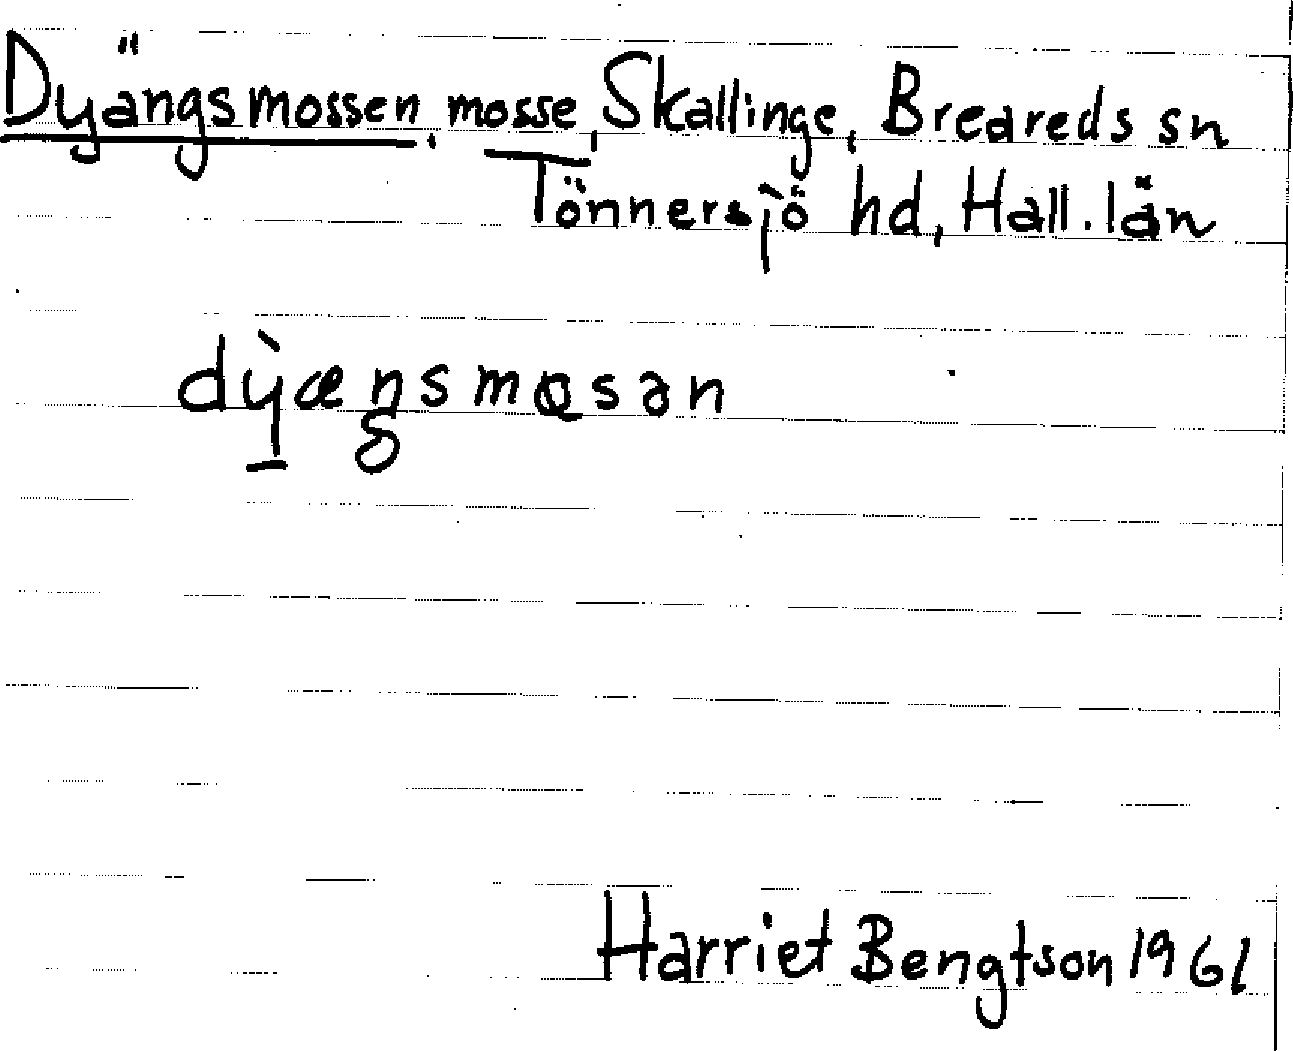 Dyängsmossen, mosse, Skallinge, Breareds sn
Tönnersjö hd, Hall. län
dỳ̱æŋsmɷsən
Harriet Bengtson 1961